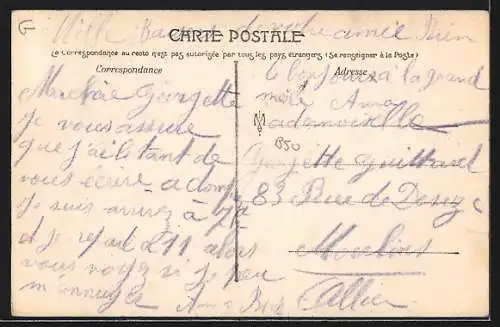 G
Mille Baisers de votre amie
CARTE POSTALE
La Correspondance au recto n'est pas autorisée par tous les pays étrangers (Se renseigner à la Poste)
Correspondance
Ma chère Georgette
je vous assure
que j'ai le tant de
vous écrire
je suis arrivée à
et je repart 211 alors
vous voyez si je peu
m'ennuyer
Adresse
bonjours à la grand
mère Anna
Mademoiselle
B50
Georgette Guittard
83 Rue de
Moulins
Allier